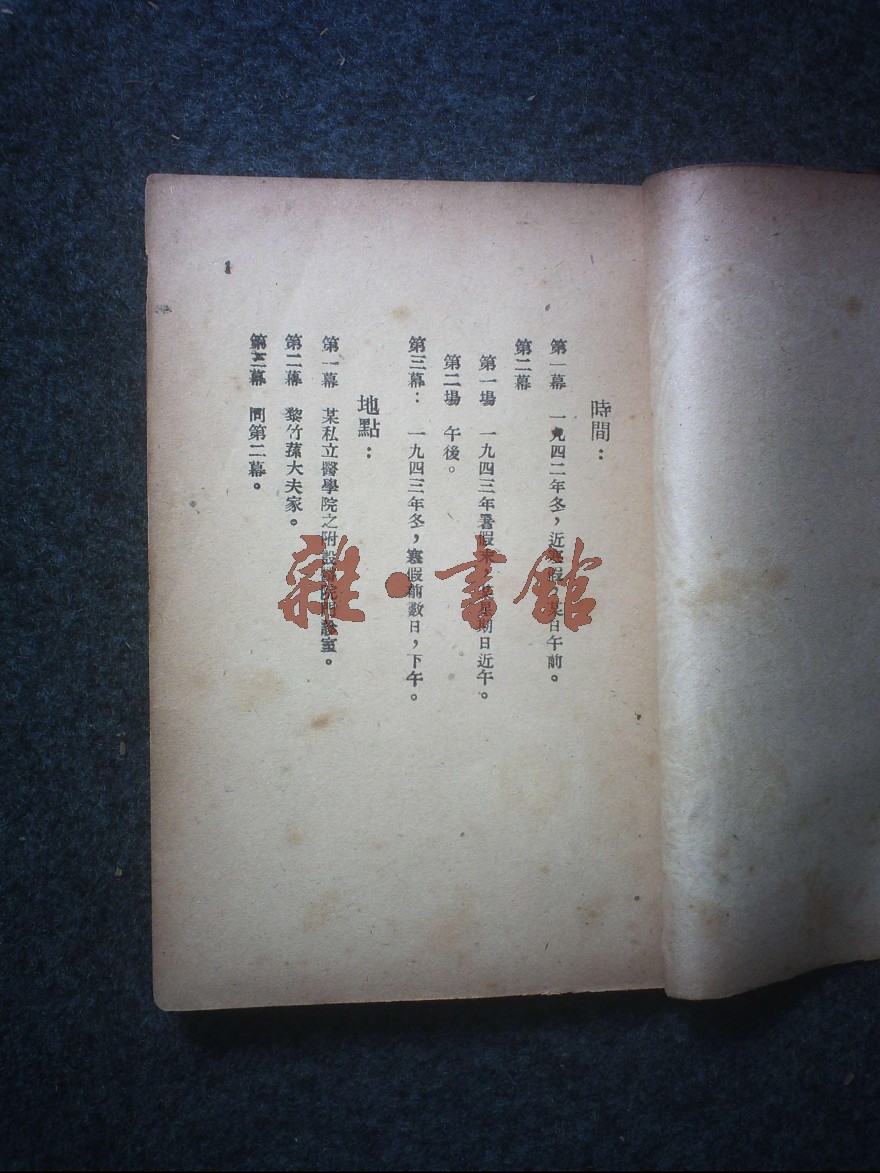 時間：
第一幕　一九四二年冬，近寒假，某日午前。
第二幕
第一場　一九四三年暑假末，某星期日近午。
第二場　午後。
第三幕：　一九四三年冬，寒假前數日，下午。
地點：
第一幕　某私立醫學院之附設醫院門診室。
第二幕　黎竹蓀大夫家。
第三幕　同第二幕。
雜·書館